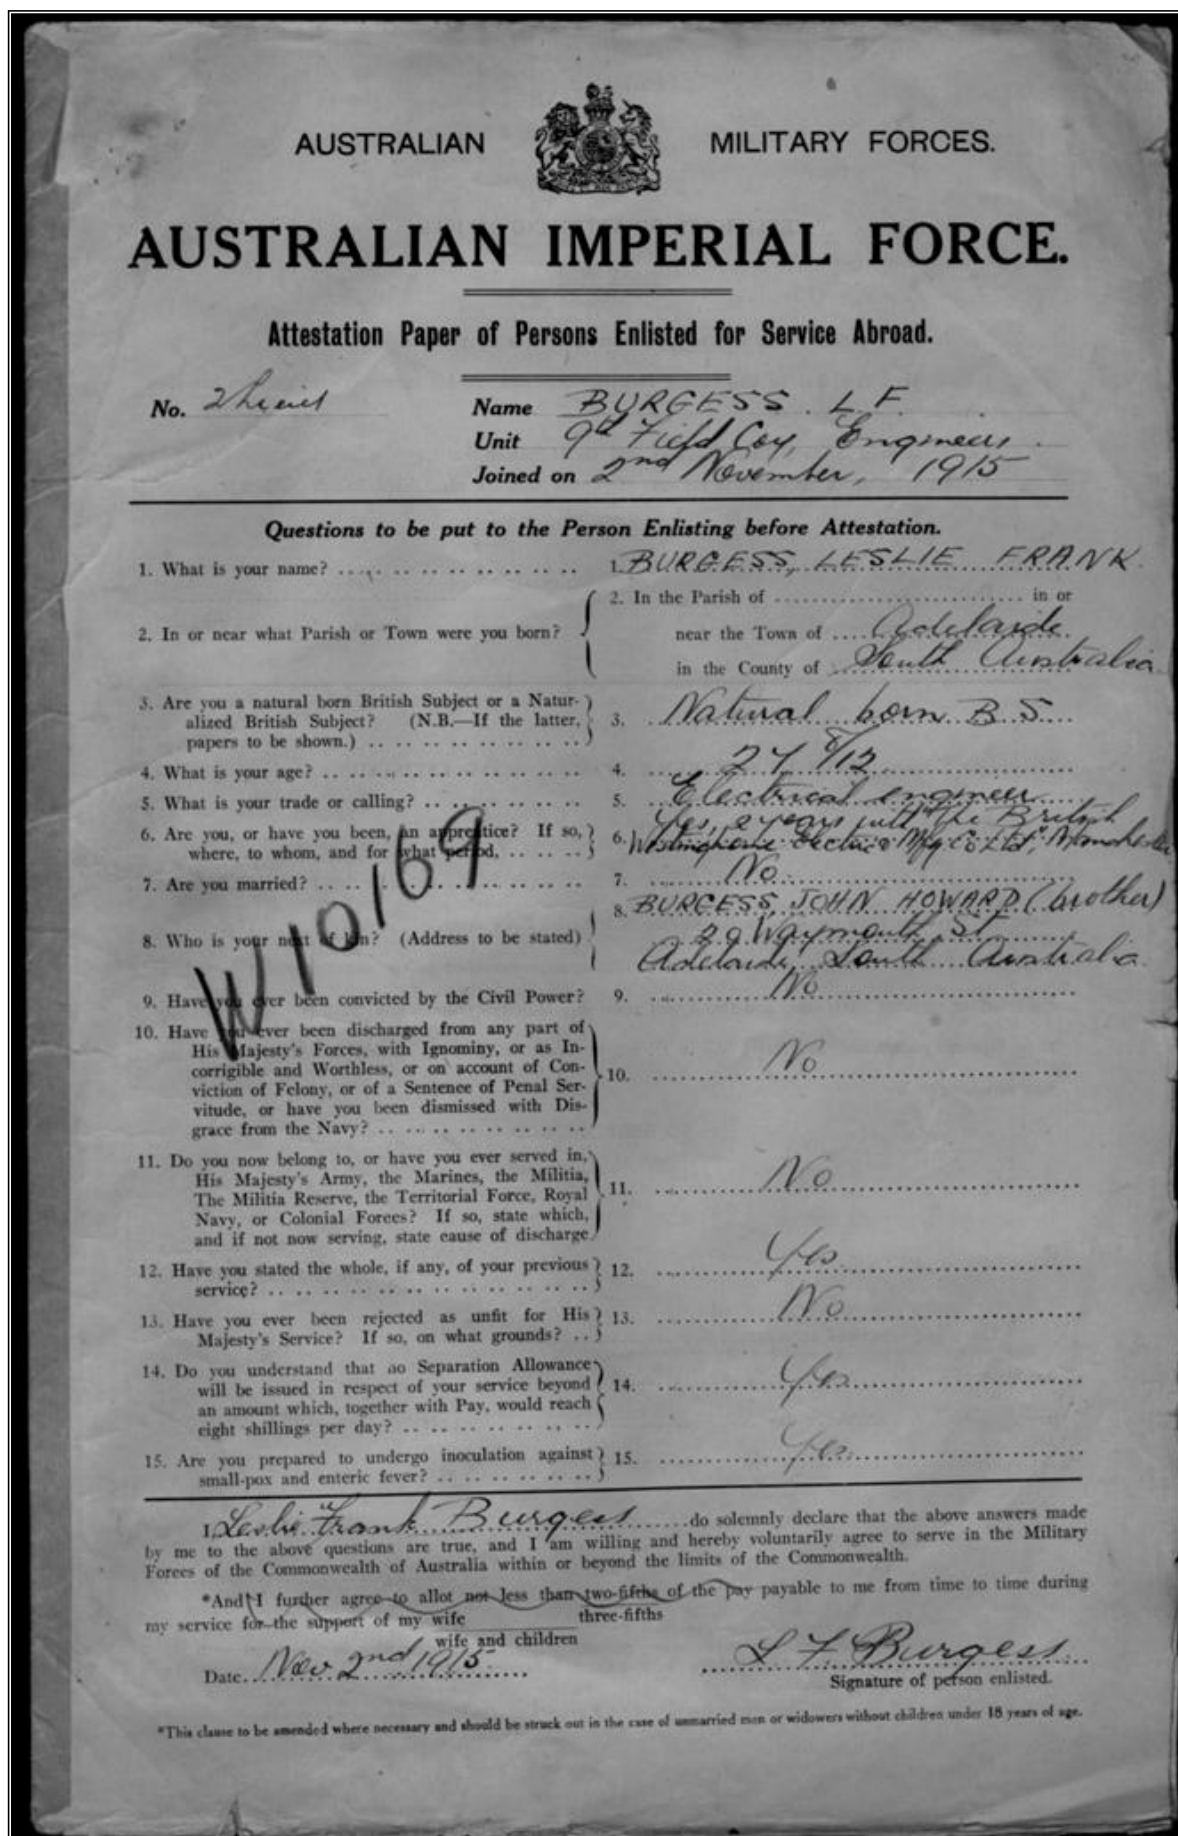 AUSTRALIAN MILITARY FORCES.
AUSTRALIAN IMPERIAL FORCE.
Attestation Paper of Persons Enlisted for Service Abroad.
No. Name BURGESS. L F.
Unit 9th Field Coy, Engineers.
Joined on 2nd November, 1915
Questions to be put to the Person Enlisting before Attestation.
1. What is your name? 1. BURGESS, LESLIE FRANK
2. In or near what Parish or Town were you born? 2. In the Parish of in or
near the Town of Adelaide
in the County of South Australia
3. Are you a natural born British Subject or a Natur-
alized British Subject? (N.B.—If the latter, 3. Natural born B S
papers to be shown.)
4. What is your age? 4. 27 8/12
5. What is your trade or calling? 5. Electrical engineer
6. Are you, or have you been, an apprentice? If so, 6. Yes, 2 years with the British
where, to whom, and for what period. Westinghouse Electric Mfg Co Ltd, Manchester
7. Are you married? 7. No
8. Who is your next of kin? (Address to be stated) 8. BURGESS, JOHN HOWARD (brother)
Waymouth St
Adelaide, South Australia
W10169
9. Have you ever been convicted by the Civil Power? 9. No
10. Have you ever been discharged from any part of
His Majesty's Forces, with Ignominy, or as In-
corrigible and Worthless, or on account of Con- 10. No
viction of Felony, or of a Sentence of Penal Ser-
vitude, or have you been dismissed with Dis-
grace from the Navy?
11. Do you now belong to, or have you ever served in,
His Majesty's Army, the Marines, the Militia,
The Militia Reserve, the Territorial Force, Royal 11. No
Navy, or Colonial Forces? If so, state which,
and if not now serving, state cause of discharge
12. Have you stated the whole, if any, of your previous 12. Yes
service?
13. Have you ever been rejected as unfit for His 13. No
Majesty's Service? If so, on what grounds?
14. Do you understand that no Separation Allowance
will be issued in respect of your service beyond 14. Yes
an amount which, together with Pay, would reach
eight shillings per day?
15. Are you prepared to undergo inoculation against 15. Yes
small-pox and enteric fever?
I, Leslie Frank Burgess do solemnly declare that the above answers made
by me to the above questions are true, and I am willing and hereby voluntarily agree to serve in the Military
Forces of the Commonwealth of Australia within or beyond the limits of the Commonwealth.
*And I further agree to allot not less than two-fifths of the pay payable to me from time to time during
three-fifths
my service for the support of my wife
wife and children
Date Nov 2nd 1915 L F Burgess
Signature of person enlisted.
*This clause to be amended where necessary and should be struck out in the case of unmarried men or widowers without children under 18 years of age.